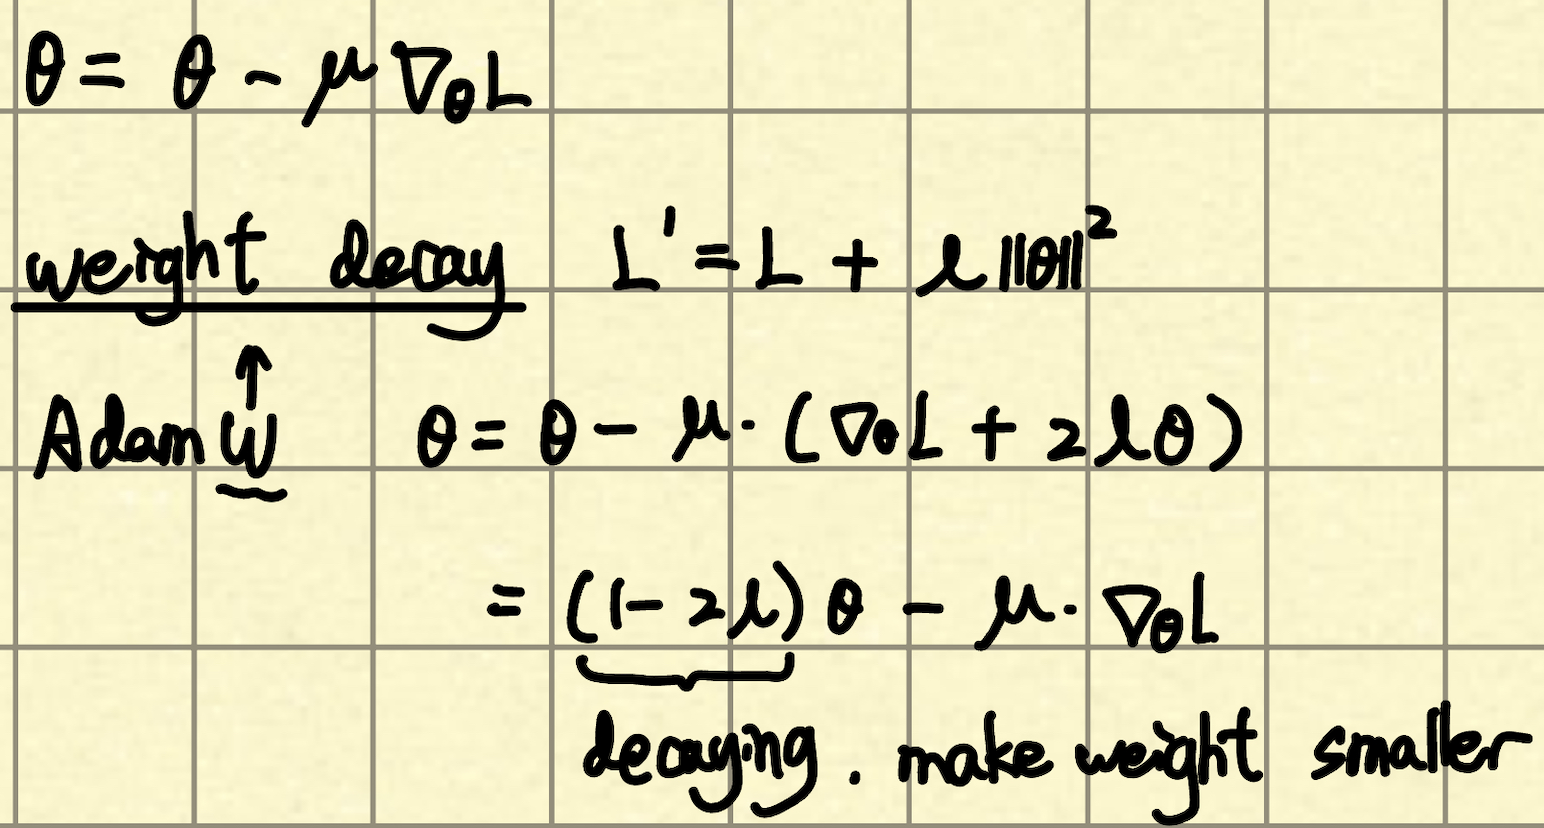 θ = θ - μ ∇_θ L
weight decay L' = L + λ ||θ||²
↑
AdamW θ = θ - μ · (∇_θ L + 2λθ)
= (1 - 2λ) θ - μ · ∇_θ L
decaying. make weight smaller